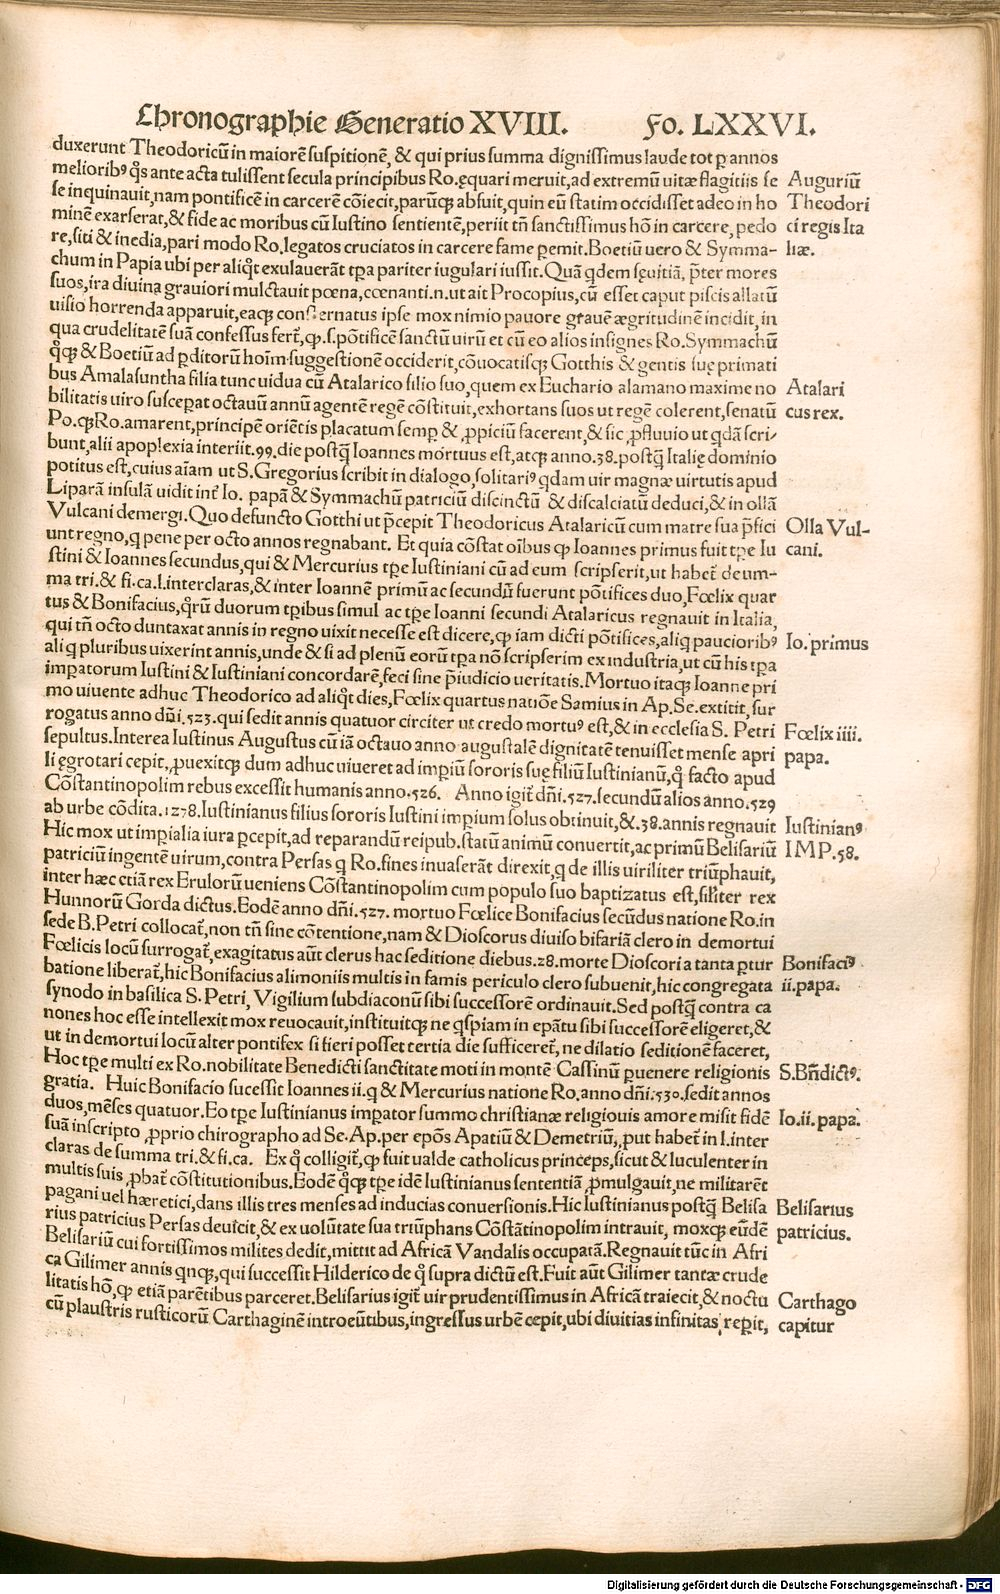 Chronographie Generatio XVIII. Fo. LXXVI.
duxerunt Theodoricū in maiorē suspitionē, & qui prius summa dignissimus laude tot ꝑ annos
melioribꝰ qͦs ante acta tulissent secula principibus Ro.ęquari meruit,ad extremū uitæ flagitiis se
se inquinauit,nam pontificē in carcerē cōiecit,parūqꝫ abfuit,quin eū statim occidisset adeo in ho
minē exarserat,& fide ac moribus cū Iustino sentientē,periit tñ sanctissimus hō in carcere, pedo
re,siti & inedia,pari modo Ro.legatos cruciatos in carcere fame ꝑemit.Boetiū uero & Symma-
chum in Papia ubi per aliqͭ exulauerāt tꝑa pariter iugulari iussit.Quā qdem sęuitiā, ꝑter mores
suos,ira diuina grauiori mulctauit pœna,cœnanti.n.ut ait Procopius,cū esset caput piscis allatū
uisio horrenda apparuit,eaqꝫ consternatus ipse mox nimio pauore grauē ægritudinē incidit, in
qua crudelitatē suā confessus fert᷑,ꝙ.s.pōtificē sanctū uirū et cū eo alios insignes Ro.Symmachū
qͦqꝫ & Boetiū ad ꝓditorū hoīm suggestionē occiderit,cōuocatisqꝫ Gotthis & gentis suę primati
bus Amalasuntha filia tunc uidua cū Atalarico filio suo,quem ex Euchario alamano maxime no
bilitatis uiro susceꝑat octauū annū agentē regē cōstituit,exhortans suos ut regē colerent,senatū
Po.qꝫ Ro.amarent,principē oriētis placatum semꝑ & ꝓpiciū facerent,& sic ꝓfluuio ut qdā scri/
bunt,alii apoplexia interiit.99.die postq̄ Ioannes mortuus est,atqꝫ anno.38.postq̄ Italię dominio
potitus est,cuius aīam ut S.Gregorius scribit in dialogo,solitariꝰ qdam uir magnæ uirtutis apud
Liparā insulā uidit int᷑ Io. papā & Symmachū patriciū discinctū & discalciatū deduci,& in ollā
Vulcani demergi.Quo defuncto Gotthi ut p̄cepit Theodoricus Atalaricū cum matre sua p̄fici
unt regno,q pene per octo annos regnabant. Et quia cōstat oībus ꝙ Ioannes primus fuit tꝑe Iu
stini & Ioannes secundus,qui & Mercurius tꝑe Iustiniani cū ad eum scripserit,ut habet᷑ de um-
ma tri.& fi.ca.l.interclaras,& inter Ioannē primū ac secundū fuerunt pōtifices duo,Fœlix quar
tus & Bonifacius,qͦrū duorum tꝑibus simul ac tꝑe Ioanni secundi Atalaricus regnauit in Italia,
qui tñ octo duntaxat annis in regno uixit necesse est dicere,ꝙ iam dicti pōtifices,aliq paucioribꝰ
ali q pluribus uixerint annis,unde & si ad plenū eorū tꝑa nō scripserim ex industria,ut cū his tꝑa
imꝑatorum Iustini & Iustiniani concordarē,feci sine p̄iudicio ueritatis.Mortuo itaqꝫ Ioanne pri
mo uiuente adhuc Theodorico ad aliqͭ dies,Fœlix quartus natiōe Samius in Ap.Se.extitit, sur
rogatus anno dñi.523.qui sedit annis quatuor circiter ut credo mortuꝰ est,& in ecclesia S. Petri
sepultus.Interea Iustinus Augustus cū iā octauo anno augustalē dignitatē tenuisset mense apri
li ęgrotari cepit,ꝓuexitqꝫ dum adhuc uiueret ad imꝑiū sororis suę filiū Iustinianū,qͦ facto apud
Cōstantinopolim rebus excessit humanis anno.526. Anno igit᷑ dñi.527.secundū alios anno.529
ab urbe cōdita.1278.Iustinianus filius sororis Iustini imꝑium solus obtinuit,&.38.annis regnauit
Hic mox ut imꝑialia iura ꝑcepit,ad reparandū reipub.statū animū conuertit,ac primū Belisariū
patriciū ingentē uirum,contra Persas q Ro.fines inuaserāt direxit,q de illis uiriliter triūphauit,
inter hæc etiā rex Erulorū ueniens Cōstantinopolim cum populo suo baptizatus est,sil̄iter rex
Hunnorū Gorda dictus.Eodē anno dñi.527. mortuo Fœlice Bonifacius secūdus natione Ro.in
sede B.Petri collocat᷑,non tñ sine cōtentione,nam & Dioscorus diuiso bifariā clero in demortui
Fœlicis locū surrogat᷑,exagitatus aūt clerus hac seditione diebus.28.morte Dioscori a tanta ꝑtur
batione liberat᷑,hic Bonifacius alimoniis multis in famis periculo clero subuenit,hic congregata
synodo in basilica S. Petri, Vigilium subdiaconū sibi successorē ordinauit.Sed postq̄ contra ca
nones hoc esse intellexit mox reuocauit,instituitqꝫ ne qspiam in epātu sibi successorē eligeret,&
ut in demortui locū alter pontifex si fieri posset tertia die sufficeret᷑, ne dilatio seditionē faceret,
Hoc tꝑe multi ex Ro.nobilitate Benedicti sanctitate moti in montē Cassinū ꝑuenere religionis
gratia. Huic Bonifacio sucessit Ioannes ii.q & Mercurius natione Ro.anno dñi.530.sedit annos
duos,mēses quatuor.Eo tꝑe Iustinianus imꝑator summo christianæ religiouis amore misit fidē
suā inscripto ꝓprio chirographo ad Se.Ap.per epōs Apatiū & Demetriū,ꝓut habet᷑ in l.inter
claras de summa tri.& fi.ca. Ex qͦ colligit᷑,ꝙ fuit ualde catholicus princeps,sicut & luculenter in
multis suis ꝓbat᷑ cōstitutionibus.Eodē qͦqꝫ tꝑe idē Iustinianus sententiā ꝓmulgauit,ne militarēt
pagani uel hæretici,dans illis tres menses ad inducias conuersionis.Hic Iustinianus postq̄ Belisa
rius patricius Persas deuicit,& ex uolūtate sua triūphans Cōstātinopolim intrauit, moxqꝫ eūdē
Belisariū cui fortissimos milites dedit,mittit ad Africā Vandalis occupatā.Regnauit tūc in Afri
ca Gilimer annis qnqꝫ,qui successit Hilderico de qͦ supra dictū est.Fuit aūt Gilimer tantæ crude
litatis hō,ꝙ etiā parētibus parceret.Belisarius igit᷑ uir prudentissimus in Africā traiecit,& noctu
cū plaustris rusticorū Carthaginē introeūtibus,ingressus urbē cepit,ubi diuitias infinitas reꝑit,
Auguriū
Theodori
ci regis Ita
liæ.
Atalari
cus rex.
Olla Vul-
cani.
Io.primus
Fœlix iiii.
papa.
Iustinianꝰ
IMP.58.
Bonifaciꝰ
ii.papa.
S.Bñdictꝰ.
Io.ii.papa.
Belisarius
patricius.
Carthago
capitur
Digitalisierung gefördert durch die Deutsche Forschungsgemeinschaft - DFG